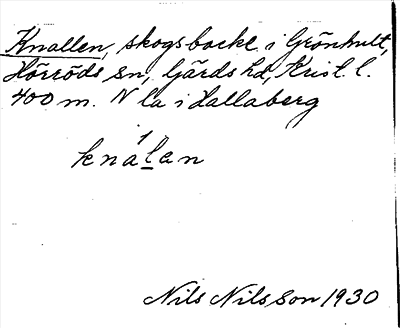 Knallen, skogsbacke i Grönhult,
Hörröds sn, Gärds hd, Krist. l.
400 m. N la i Hallaberg
knalan
Nils Nilsson 1930